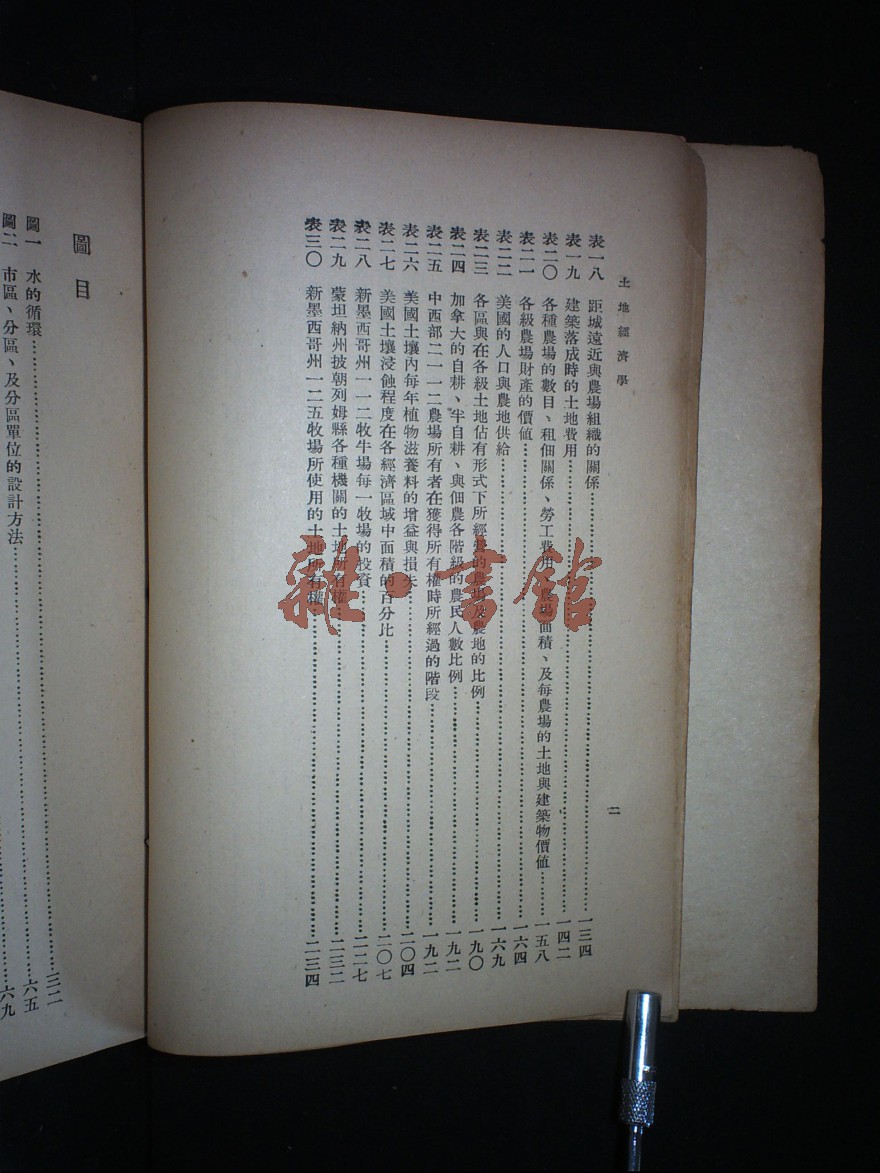 土地經濟學
二
表一八 距城遠近與農場組織的關係……一三四
表一九 建築落成時的土地費用……一四二
表二〇 各種農場的數目、租佃關係、勞工費用、農場面積、及每農場的土地與建築物價值……一五八
表二一 各級農場財產的價值……一六四
表二二 美國的人口與農地供給……一六九
表二三 各區與在各級土地佔有形式下所經營的農場及農地的比例……一九〇
表二四 加拿大的自耕、半自耕、與佃農各階級的農民人數比例……一九二
表二五 中西部二一一二農場所有者在獲得所有權時所經過的階段……一九二
表二六 美國土壤內每年植物滋養料的增益與損失……二〇四
表二七 美國土壤浸蝕程度在各經濟區域中面積的百分比……二〇七
表二八 新墨西哥州一一二牧牛場每一牧場的投資……二二七
表二九 蒙坦納州披朝列姆縣各種機關的土地所有權……二三二
表三〇 新墨西哥州一二五牧場所使用的土地所有權……二三四
圖目
圖一 水的循環……三二
圖二 市區、分區、及分區單位的設計方法……六五
六九
雜·書館